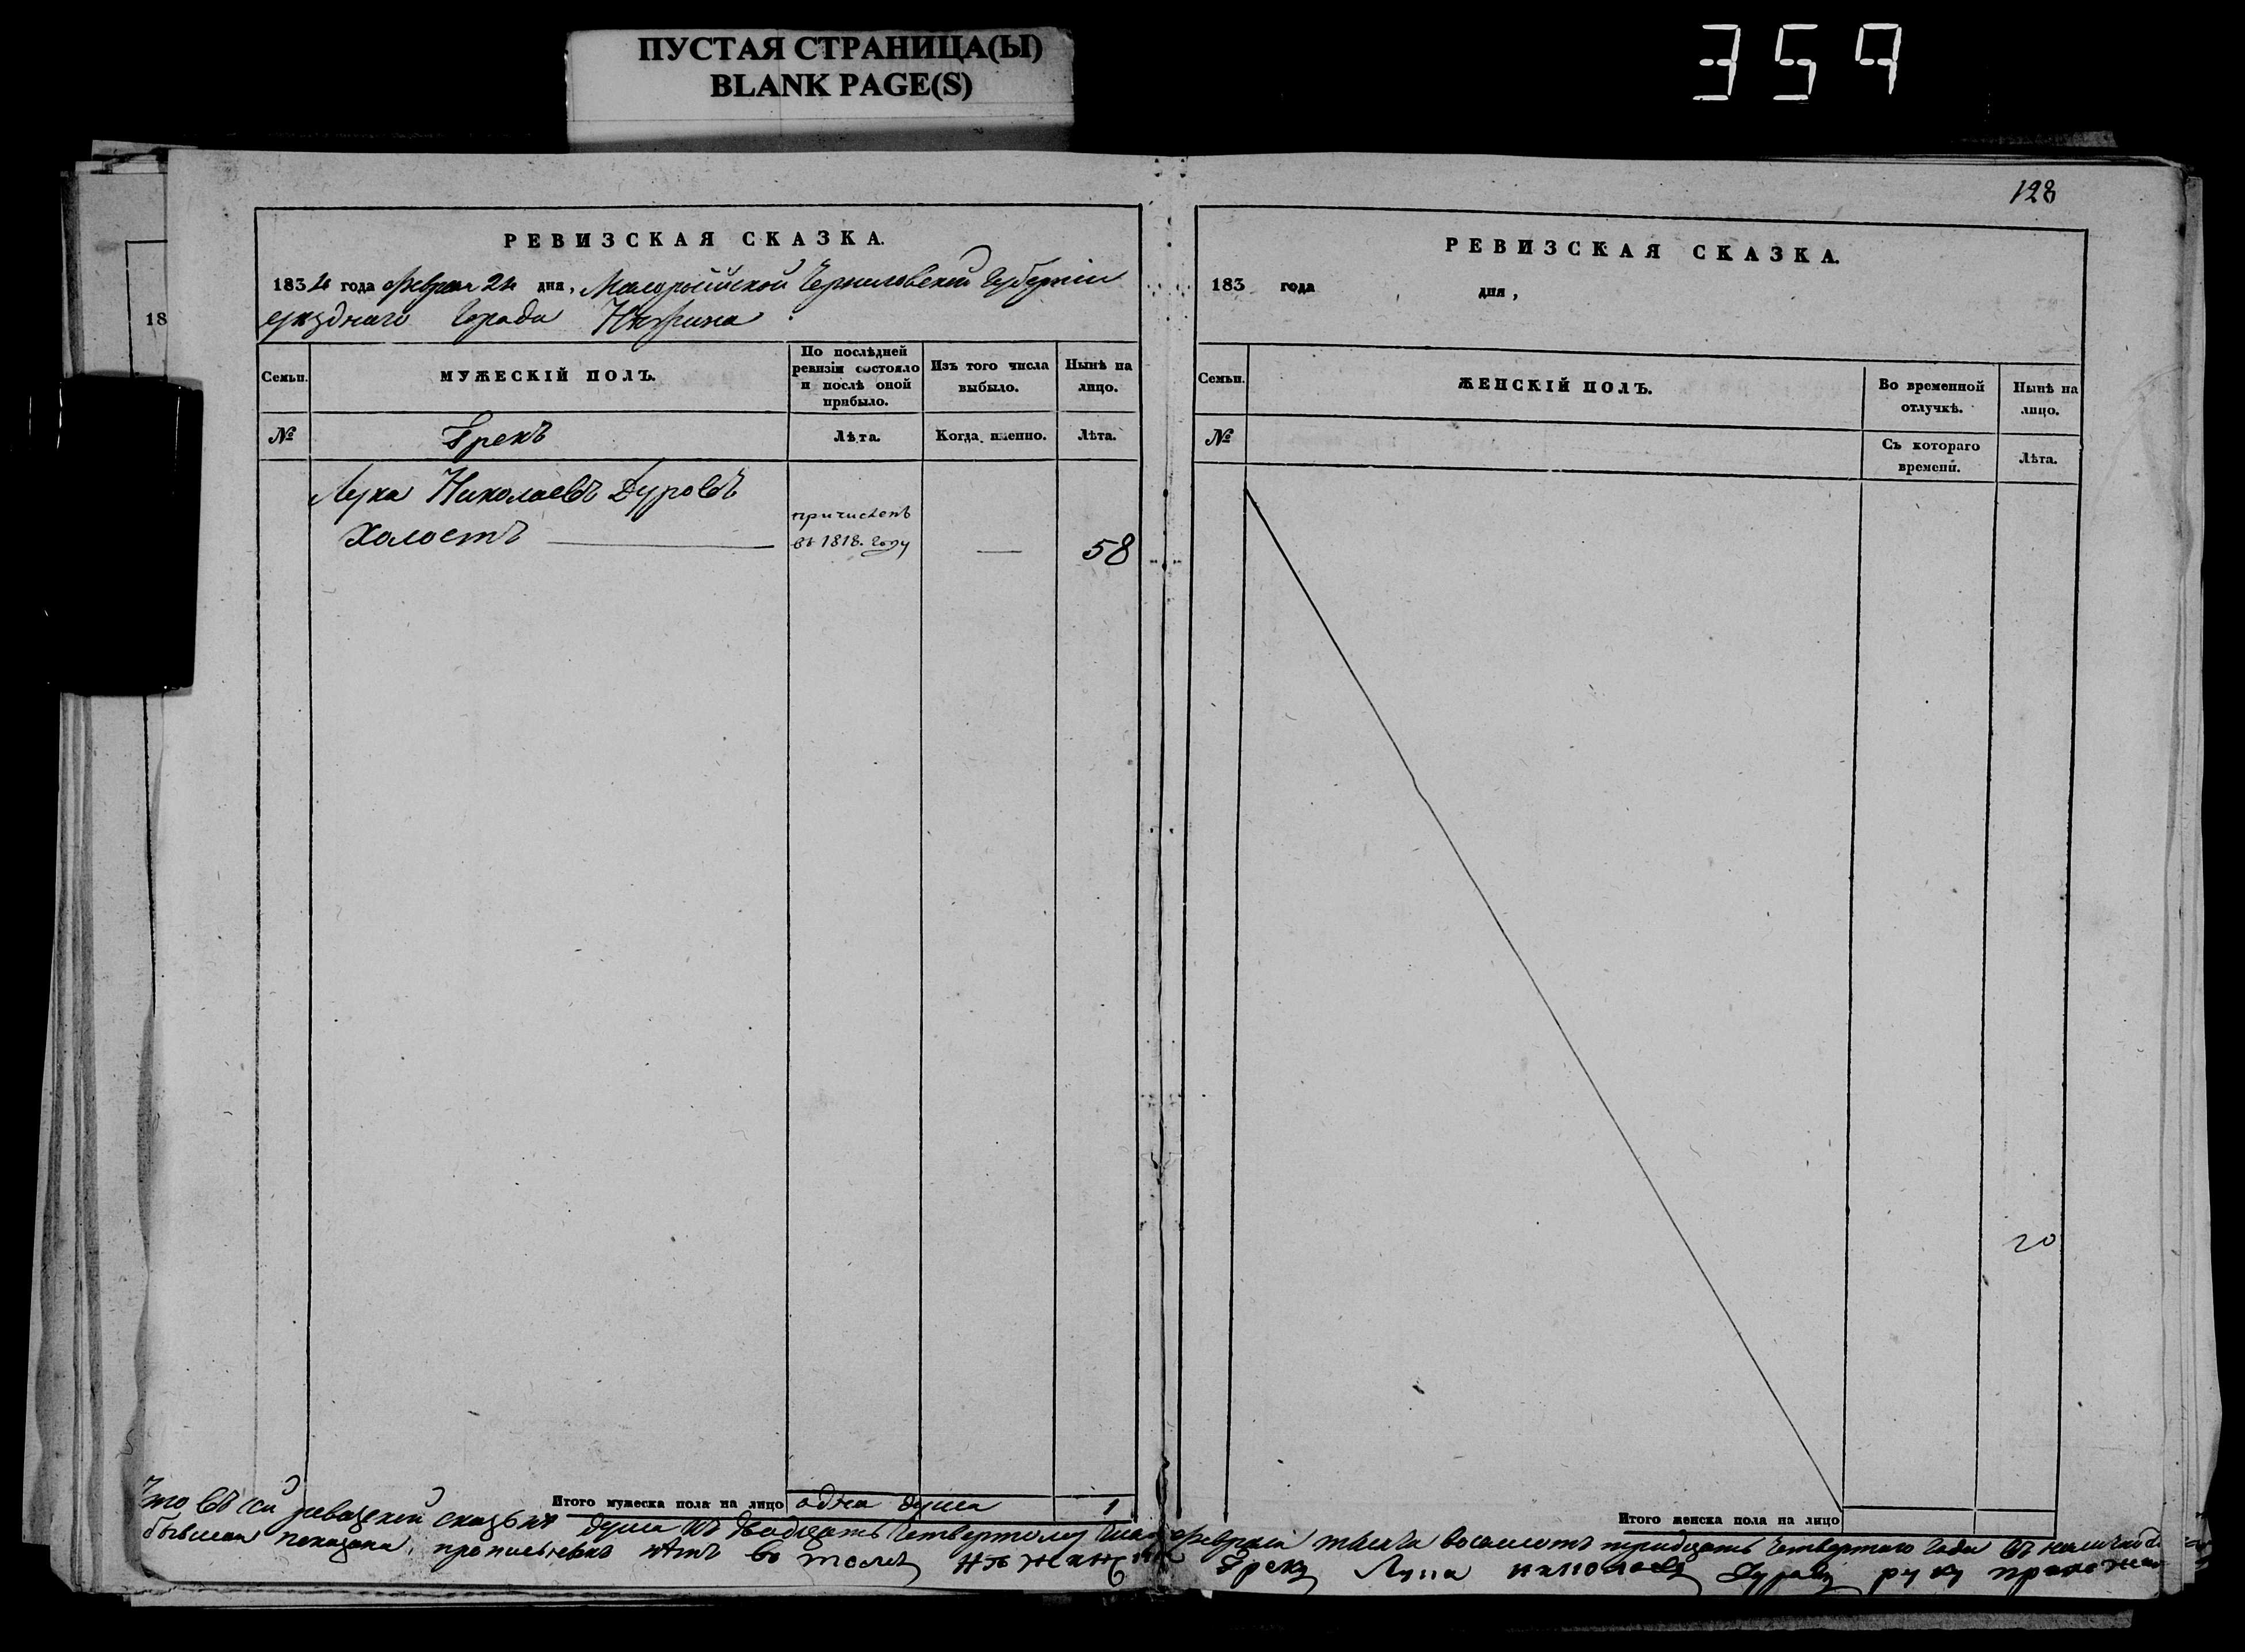 ПУСТАЯ СТРАНИЦА(Ы)
BLANK PAGE(S)
359
128
РЕВИЗСКАЯ СКАЗКА.
1834 года февраля 24 дня, Малороссійской Черниговской Губерніи
уѣзднаго Города Нѣжина
Семьи.
МУЖЕСКІЙ ПОЛЪ.
По послѣдней ревизіи состояло и послѣ оной прибыло.
Изъ того числа выбыло.
Нынѣ на лицо.
№
Грекъ
Лѣта.
Когда именно.
Лѣта.
Лука Николаевъ Дуровъ
Холостъ
причисленъ
въ 1818. году
58
Итого мужеска пола на лицо
одна душа
1
18
РЕВИЗСКАЯ СКАЗКА.
183 года дня,
Семьи.
ЖЕНСКІЙ ПОЛЪ.
Во временной отлучкѣ.
Нынѣ на лицо.
№
Съ котораго времени.
Лѣта.
20
Итого женска пола на лицо
Что въ сей ревизской сказкѣ душа къ двадцать четвертому числу февраля тысяча восемсотъ тридцать четвертаго года въ наличности
бывшая показана, прописныхъ нѣтъ въ томъ нѣжинскій Грекъ Лука Николаевъ Дуровъ руку приложилъ